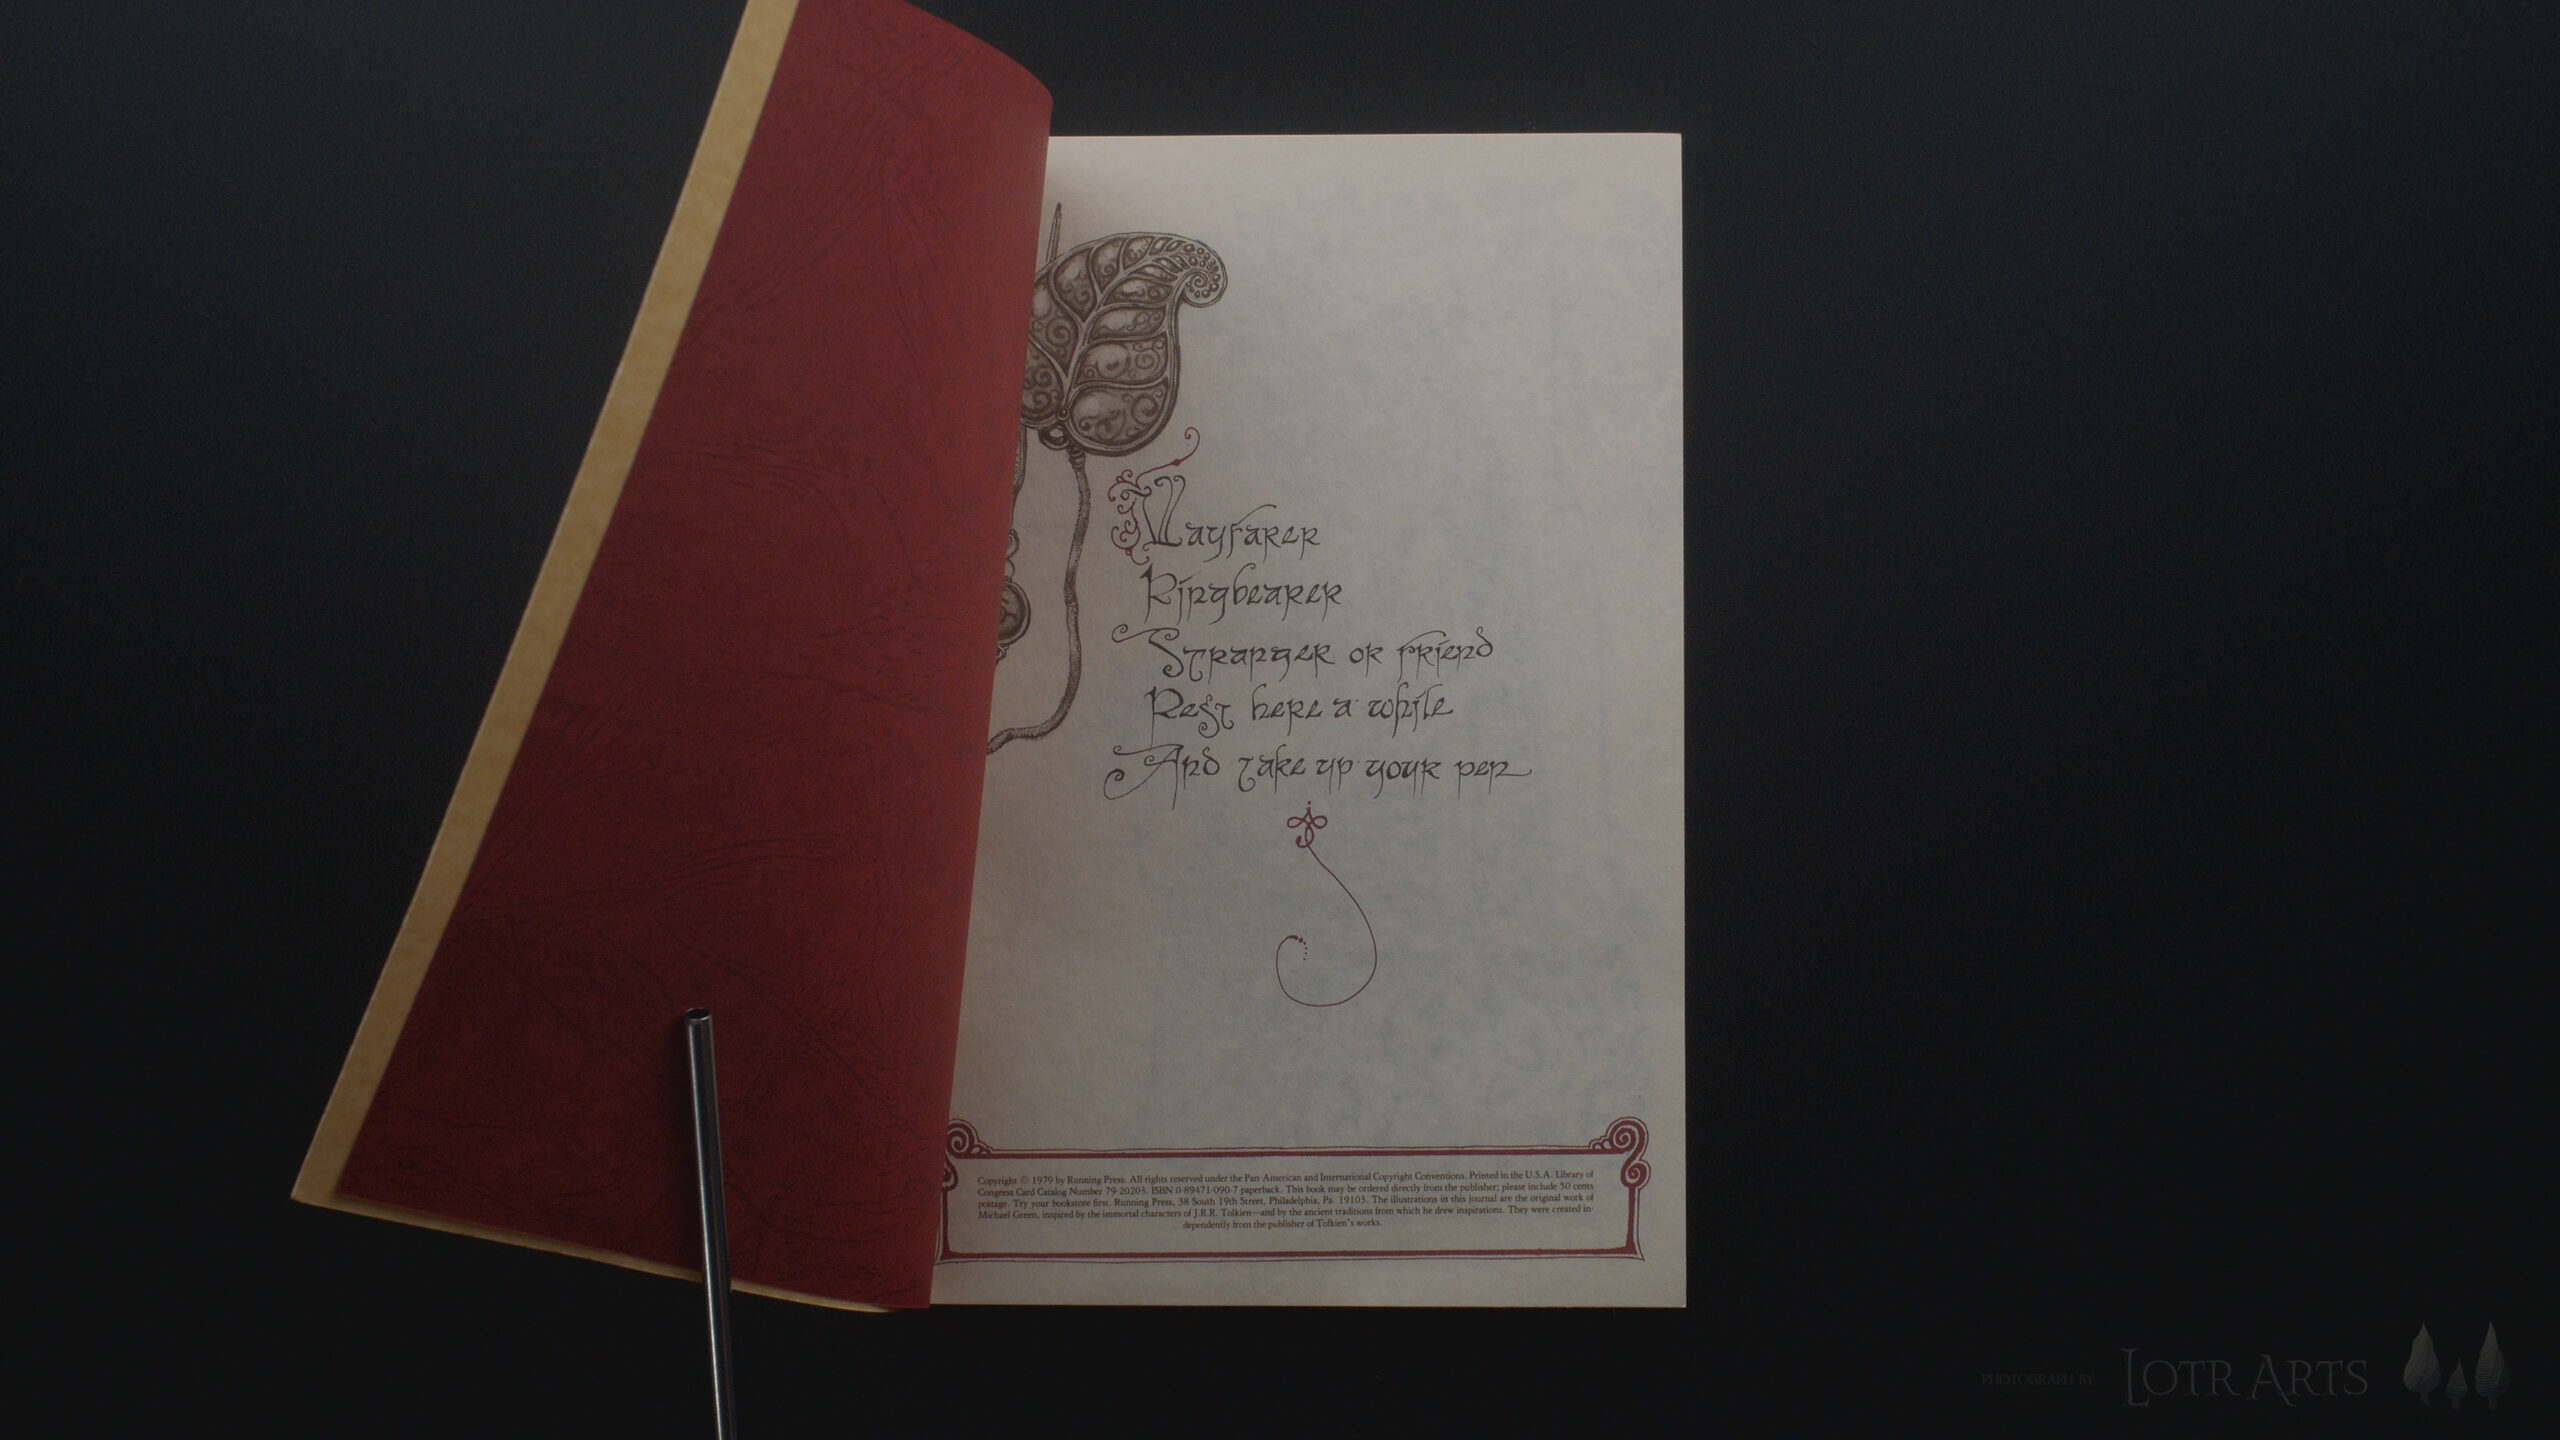 Wayfarer
Ringbearer
Stranger or friend
Rest here a while
And take up your pen
Copyright © 1979 by Running Press. All rights reserved under the Pan-American and International Copyright Conventions. Printed in the U.S.A. Library of
Congress Card Catalog Number 79-20203. ISBN 0-89471-090-7 paperback. This book may be ordered directly from the publisher; please include 50 cents
postage. Try your bookstore first. Running Press, 38 South 19th Street, Philadelphia, Pa. 19103. The illustrations in this journal are the original work of
Michael Green, inspired by the immortal characters of J.R.R. Tolkien—and by the ancient traditions from which he drew inspirations. They were created in-
dependently from the publisher of Tolkien's works.
PHOTOGRAPH BY LOTR ARTS